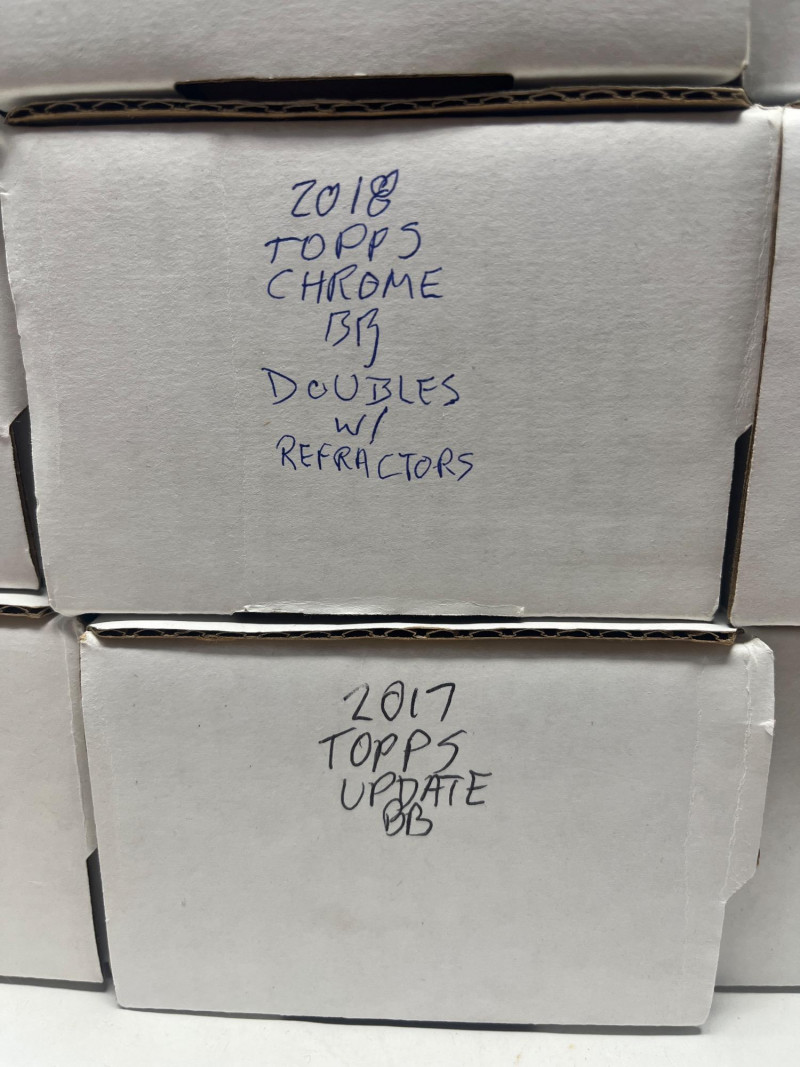 2018
TOPPS
CHROME
BB
DOUBLES
W/
REFRACTORS
2017
TOPPS
UPDATE
BB